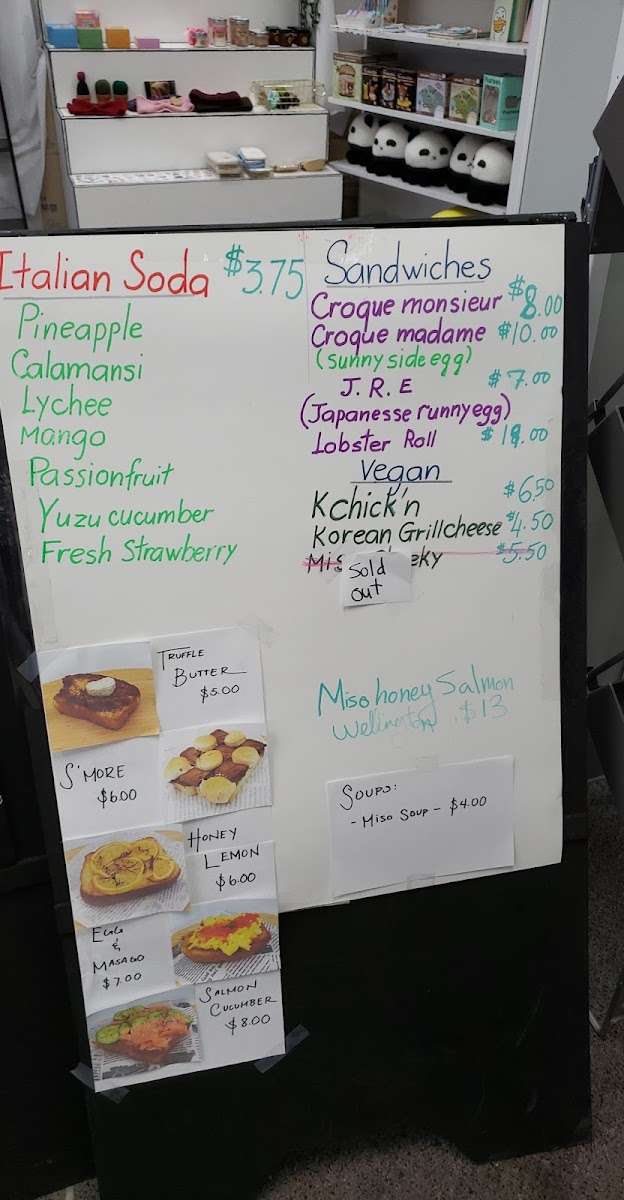 Italian Soda $3.75
Pineapple
Calamansi
Lychee
Mango
Passionfruit
Yuzu cucumber
Fresh Strawberry
Sandwiches
Croque monsieur $8.00
Croque madame $10.00
(sunny side egg)
J.R.E $7.00
(Japanesse runny egg)
Lobster Roll $18.00
Vegan
Kchick'n $6.50
Korean Grillcheese $4.50
$5.50
Sold
out
Miso honey Salmon
Wellington $13
Soups:
- Miso Soup - $4.00
Truffle
Butter
$5.00
S'more
$6.00
Honey
Lemon
$6.00
Egg
&
Masago
$7.00
Salmon
Cucumber
$8.00